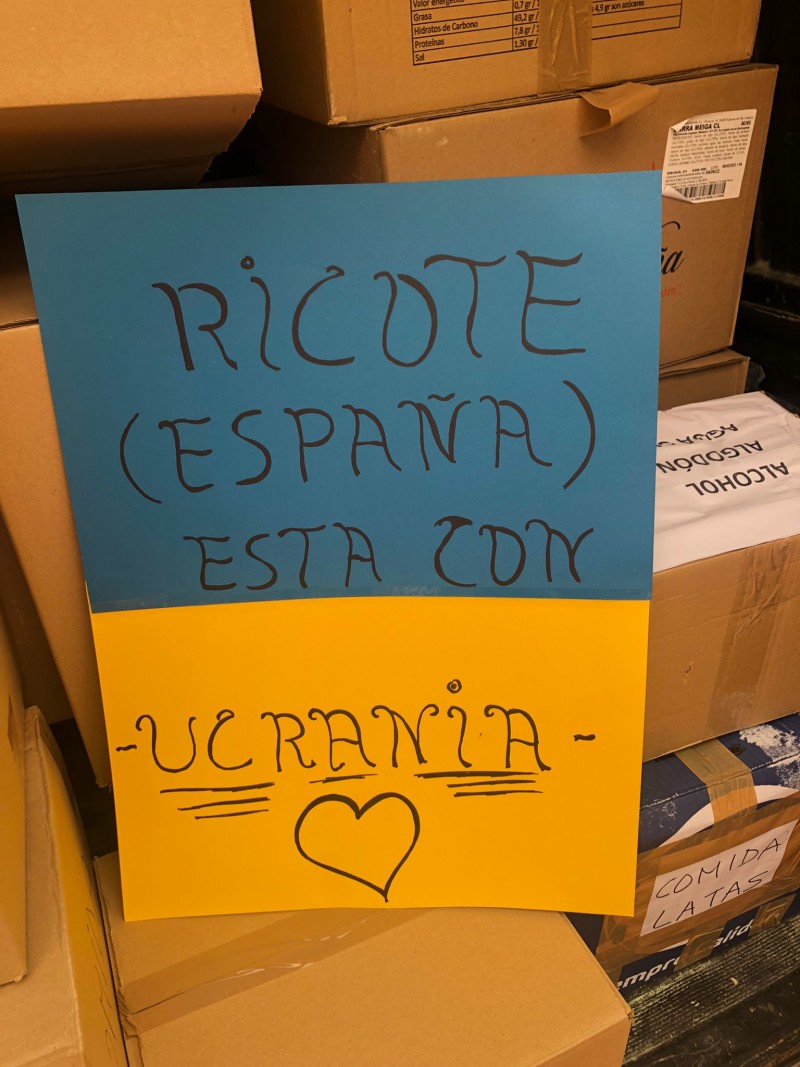 Valor energético
Grasa
Hidratos de Carbono
Proteinas
Sal
0,7 gr /
49,2 gr /
7,8 gr /
1,30 gr /
4,9 gr son azúcares
MEIGA CL
RICOTE
(ESPAÑA)
ESTA CON
-UCRANIA-
ALCOHOL
ALGODÓN
AGUA
COMIDA
LATAS